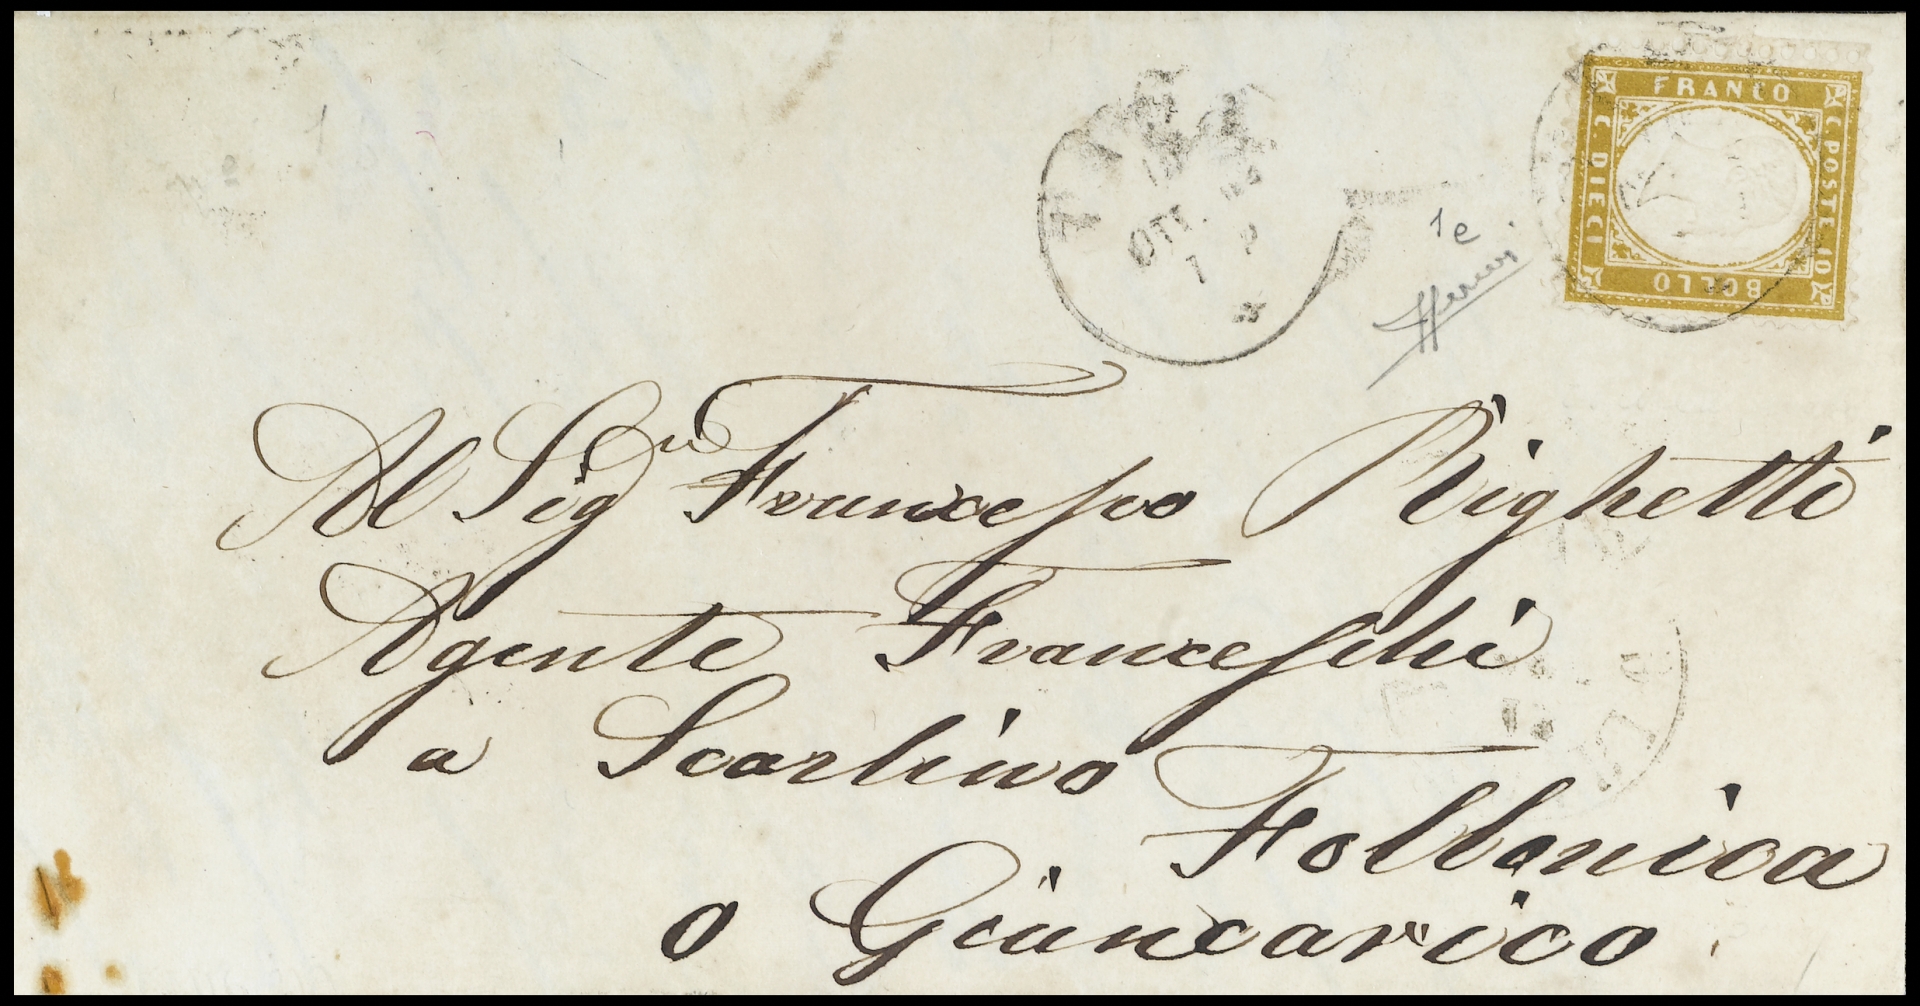 FRANCO
C. POSTE 10
BOLLO
C. DIECI
OTT.
1e
Al Sig.re Francesco Righetti
Agente Franceschi
a Scarlino
Follonica
o Giuncarico